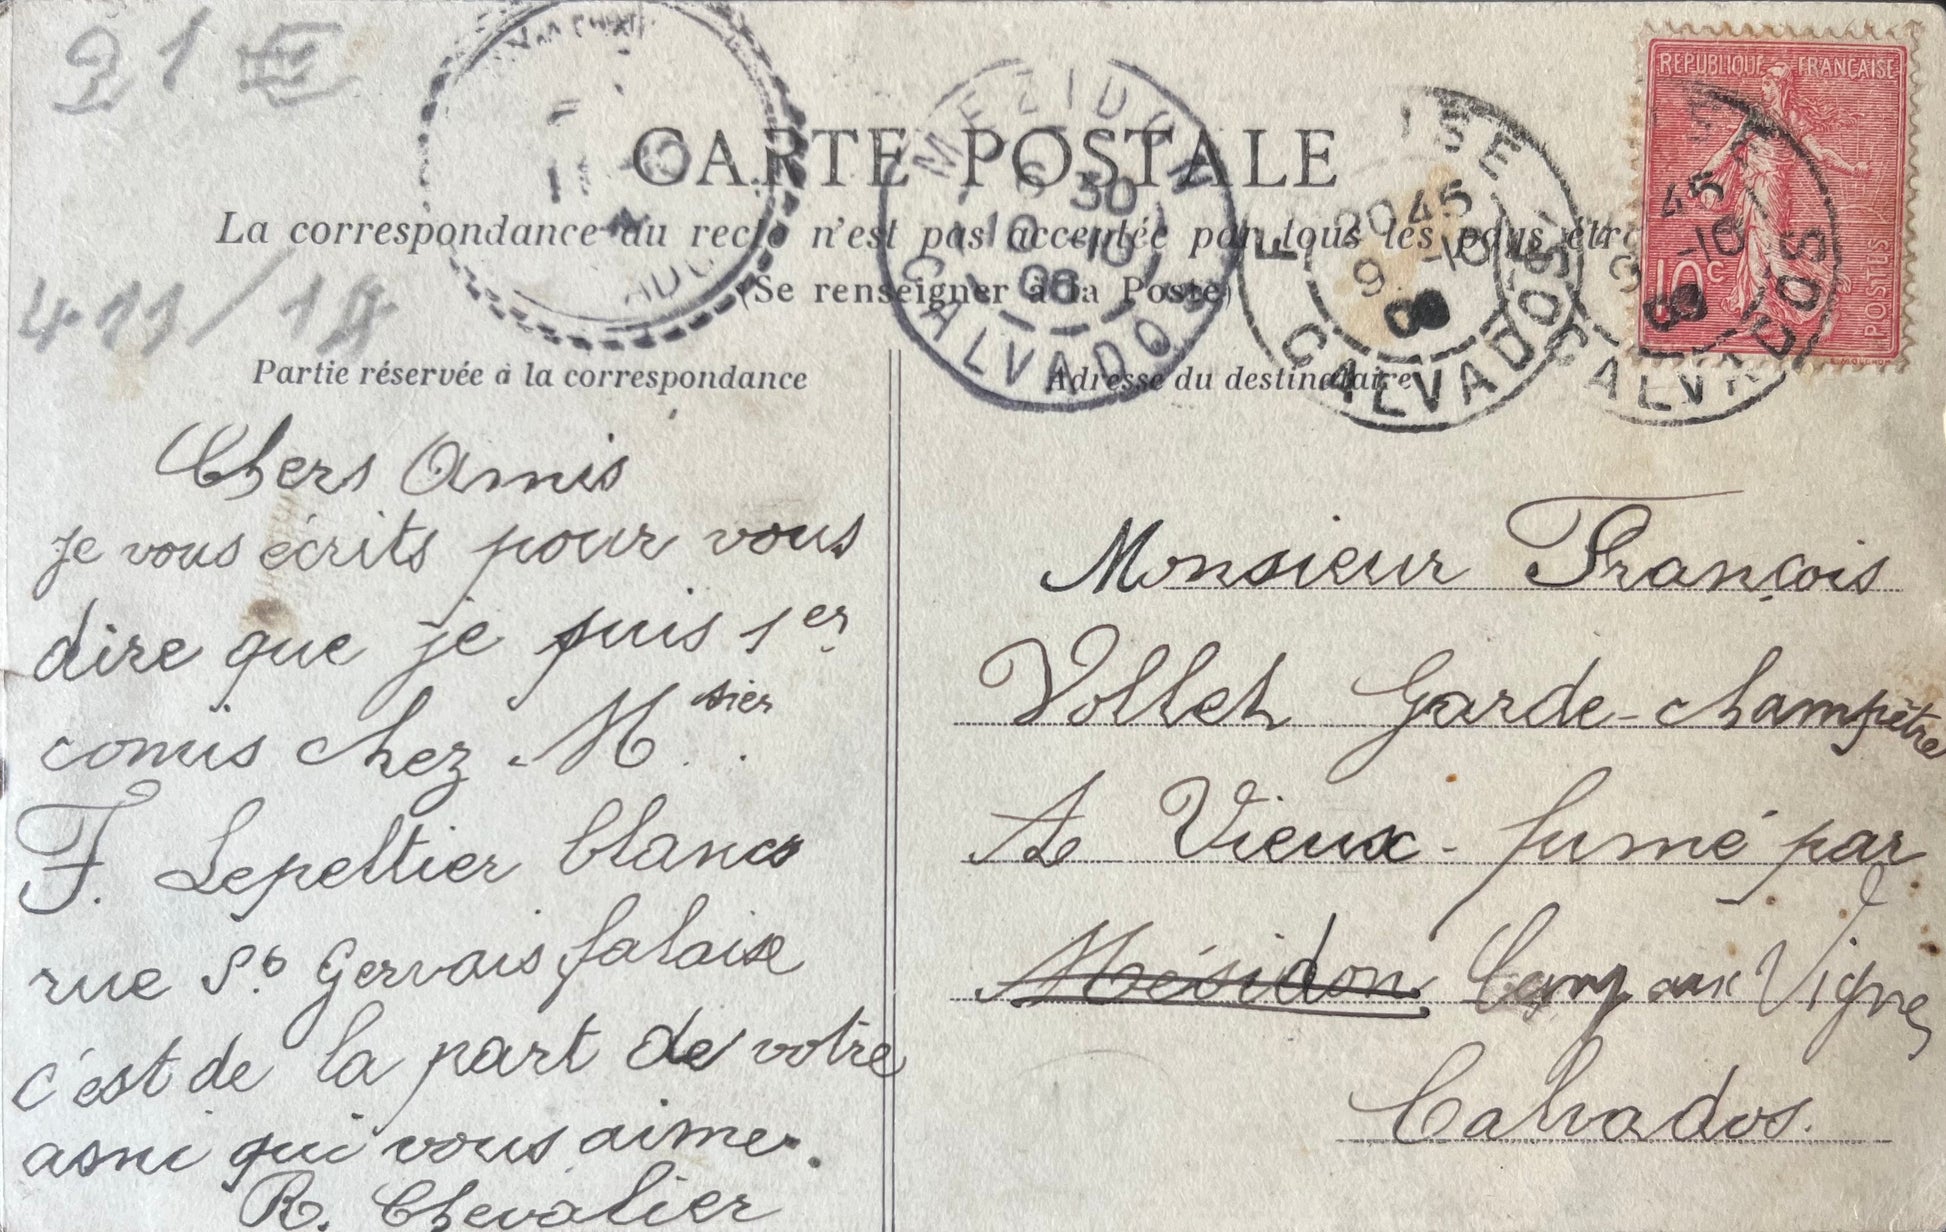 21 E
411/18
CARTE POSTALE
La correspondance au recto n'est pas acceptée par tous les pays étr
(Se renseigner à la Poste)
Partie réservée à la correspondance
Adresse du destinataire
MEZIDON
6 30
10 -10
06
CALVADOS
ISE
20 45
9 -10
CALVADOS
REPUBLIQUE FRANÇAISE
10c
POSTES
45
-10
CALVADOS
Chers Amis
je vous écrits pour vous
dire que je suis 1er
comis chez Msier
F. Lepeltier blancs
rue St Gervais falaise
c'est de la part de votre
ami qui vous aime.
R. Chevalier
Monsieur François
Vollet Garde-champêtre
A Vieux-fumé par
Mésidon Cesny aux Vignes
Calvados.